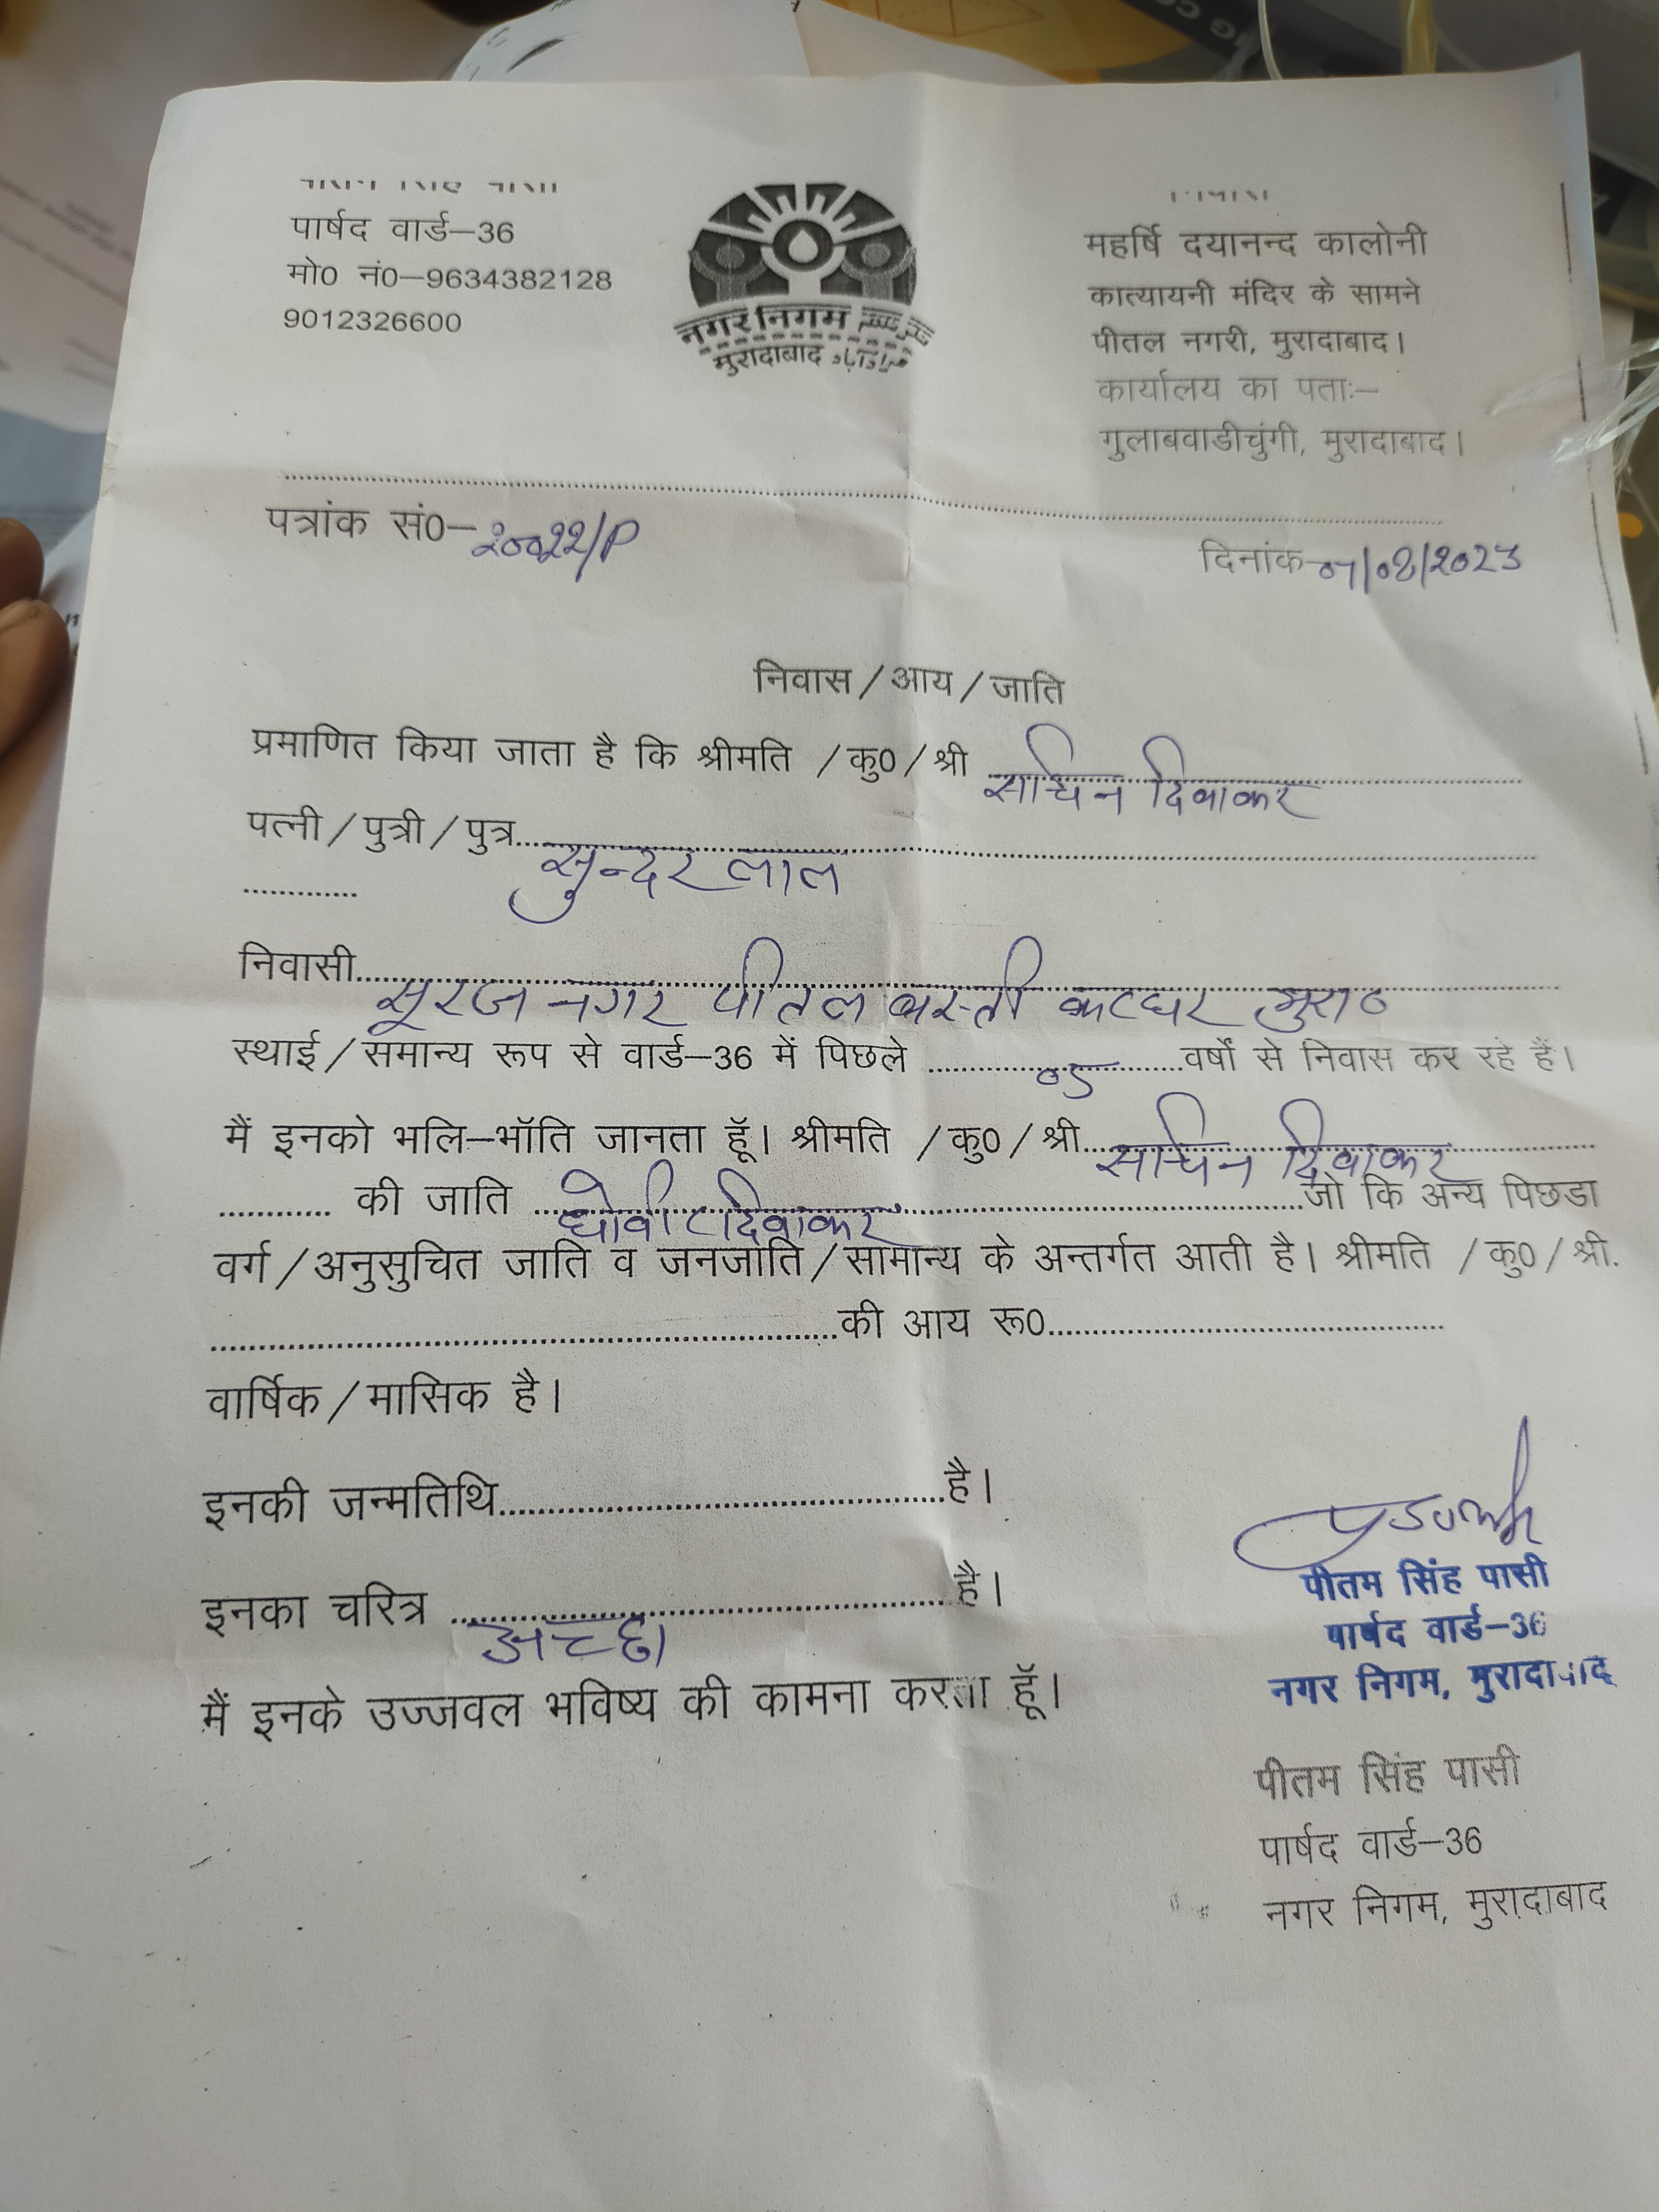 पार्षद वार्ड–36
मो0 नं0–9634382128
9012326600
नगर निगम
मुरादाबाद مرادآباد
महर्षि दयानन्द कालोनी
कात्यायनी मंदिर के सामने
पीतल नगरी, मुरादाबाद।
कार्यालय का पताः–
गुलाबवाडीचुंगी, मुरादाबाद।
पत्रांक सं0–
दिनांक
निवास / आय / जाति
प्रमाणित किया जाता है कि श्रीमति / कु0 / श्री सचिन दिवाकर
पत्नी / पुत्री / पुत्र..........सुन्दर लाल
निवासी..........सूरज नगर पीतल बस्ती कटघर मुरा०
स्थाई / समान्य रूप से वार्ड–36 में पिछले ..........05..........वर्षों से निवास कर रहे हैं।
मैं इनको भलि–भॉति जानता हूॅ। श्रीमति / कु0 / श्री..........सचिन दिवाकर
............ की जाति ..........धोबी दिवाकर..........जो कि अन्य पिछडा
वर्ग / अनुसुचित जाति व जनजाति / सामान्य के अन्तर्गत आती है। श्रीमति / कु0 / श्री.
..........की आय रू0..........
वार्षिक / मासिक है।
इनकी जन्मतिथि..........है।
इनका चरित्र ..........अच्छा..........है।
मैं इनके उज्जवल भविष्य की कामना करता हूॅ।
पीतम सिंह पासी
पार्षद वार्ड–36
नगर निगम, मुरादाबाद
पीतम सिंह पासी
पार्षद वार्ड–36
नगर निगम, मुरादाबाद